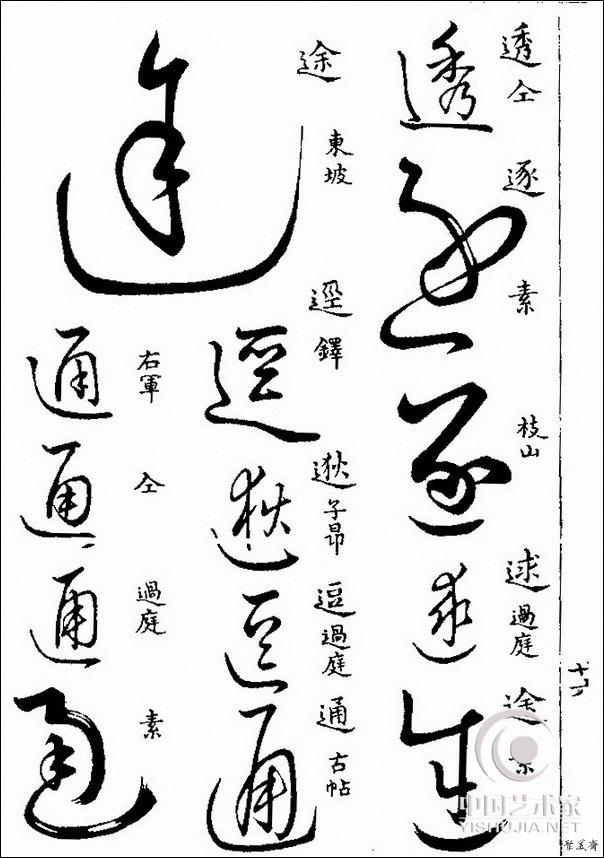 透
仝
逐
素
枝山
逑
過庭
途
素
途
東坡
逕
鐸
逖
子昂
逗
過庭
通
古帖
右軍
仝
過庭
素
中国艺术家
YISHUJIA.NET